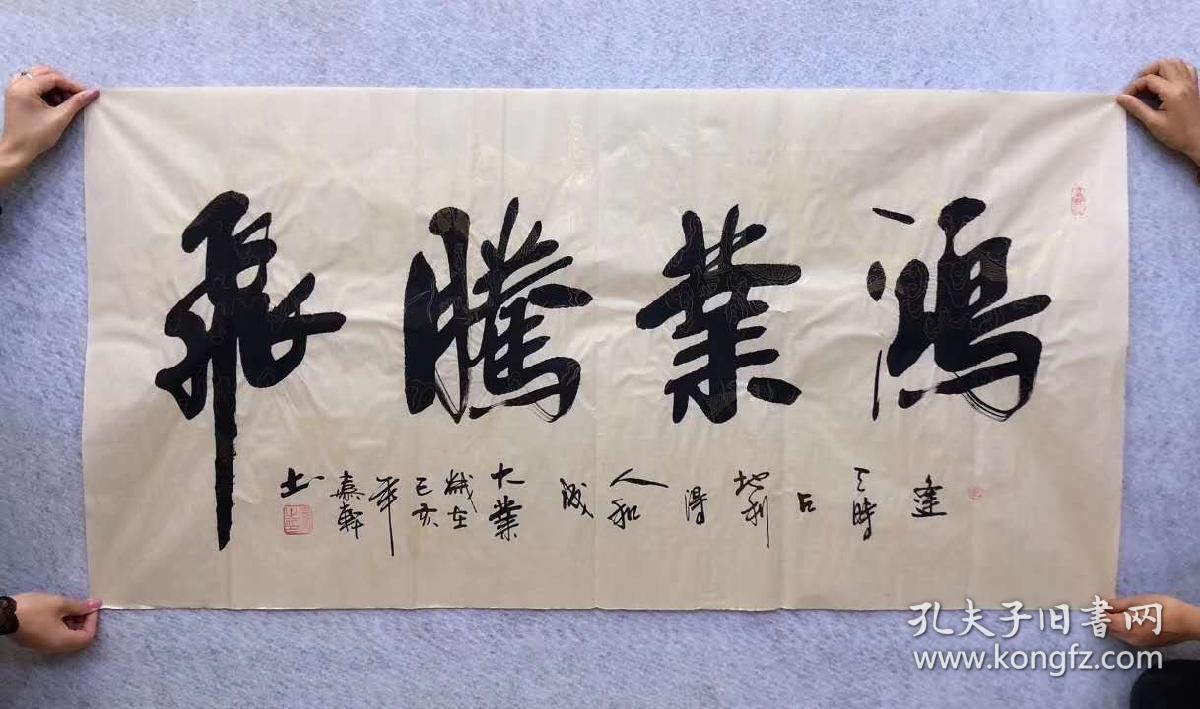 鴻業騰飛
逢
天時
占
地利
得
人和
成
大業
歲在
己亥
年
嘉軒
孔夫子旧書网
www.kongfz.com